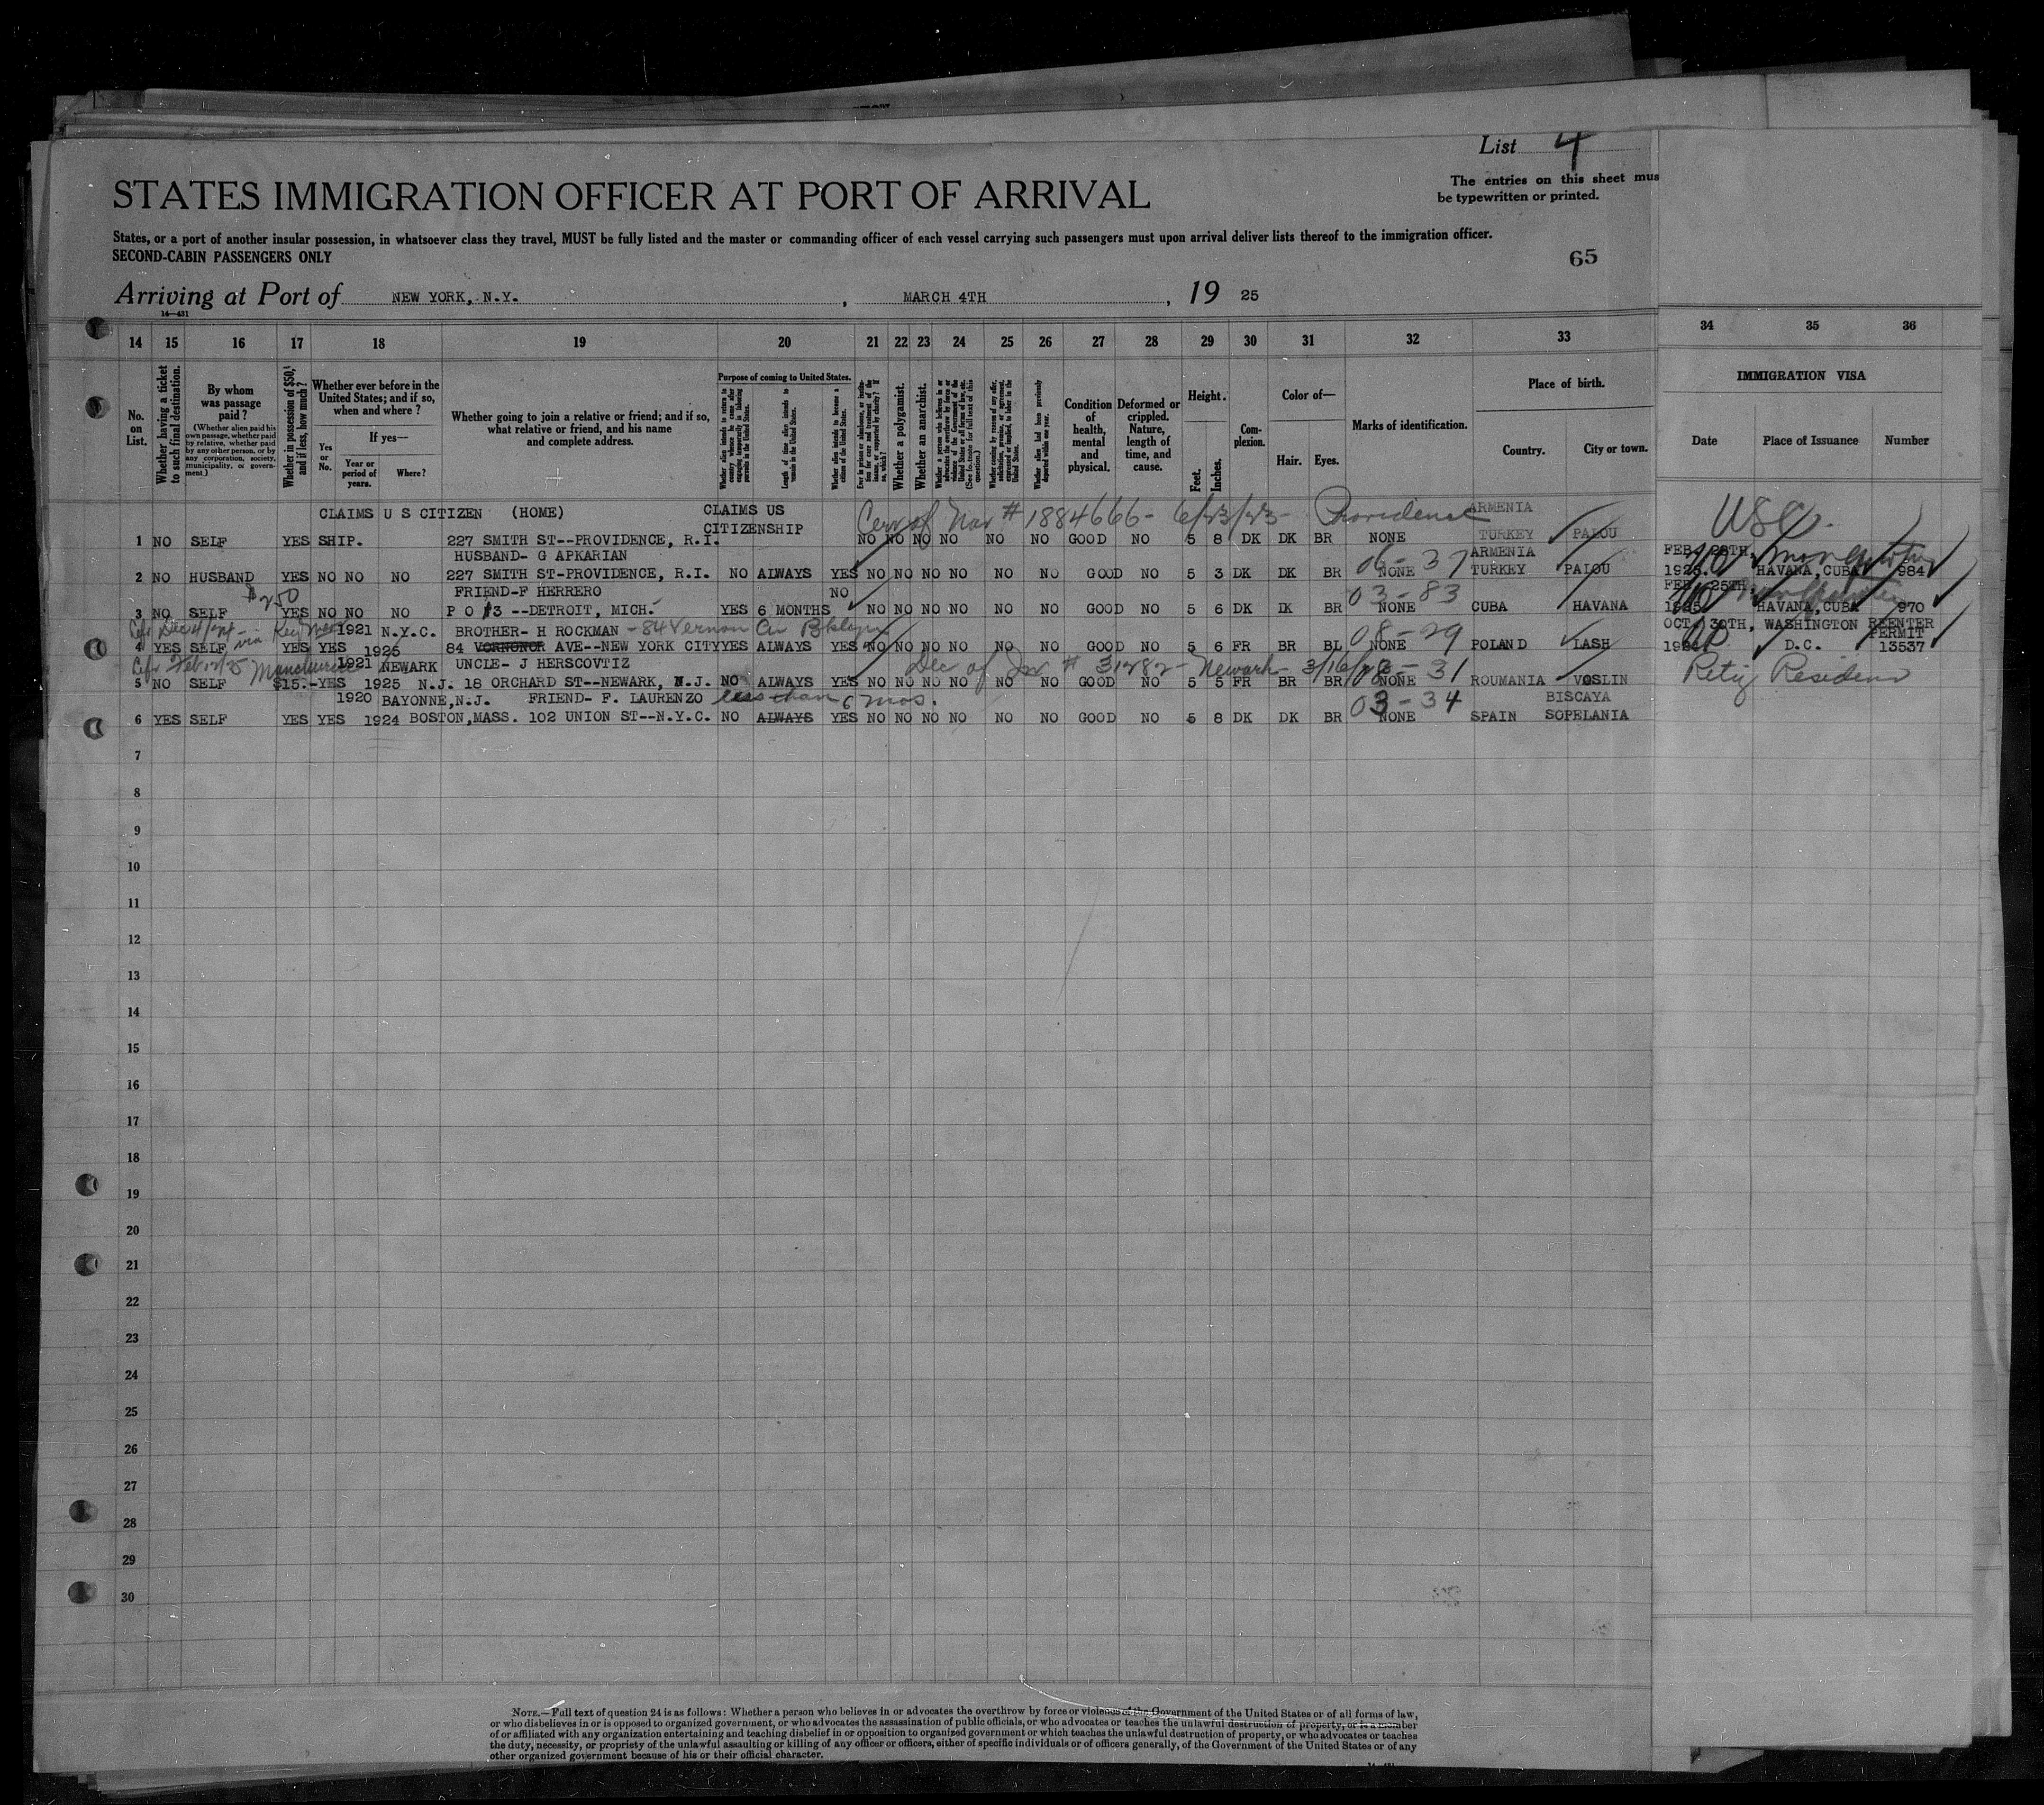 List 4
STATES IMMIGRATION OFFICER AT PORT OF ARRIVAL
The entries on this sheet mus
be typewritten or printed.
States, or a port of another insular possession, in whatsoever class they travel, MUST be fully listed and the master or commanding officer of each vessel carrying such passengers must upon arrival deliver lists thereof to the immigration officer.
SECOND-CABIN PASSENGERS ONLY
65
Arriving at Port of NEW YORK, N.Y., MARCH 4TH, 19 25
14—431
14 15 16 17 18 19 20 21 22 23 24 25 26 27 28 29 30 31 32 33 34 35 36
No. on List.
Whether having a ticket to such final destination.
By whom was passage paid?
(Whether alien paid his own passage, whether paid by relative, whether paid by any other person, or by any corporation, society, municipality, or government.)
Whether in possession of $50, and if less, how much?
Whether ever before in the United States; and if so, when and where?
Yes or No.
If yes—
Year or period of years.
Where?
Whether going to join a relative or friend; and if so, what relative or friend, and his name and complete address.
Purpose of coming to United States.
Length of time alien intends to remain in the United States.
Whether alien intends to become a citizen of the United States.
Whether a polygamist.
Whether an anarchist.
Condition of health, mental and physical.
Deformed or crippled. Nature, length of time, and cause.
Height.
Feet.
Inches.
Complexion.
Color of—
Hair.
Eyes.
Marks of identification.
Place of birth.
Country.
City or town.
IMMIGRATION VISA
Date
Place of Issuance
Number
CLAIMS U S CITIZEN (HOME) CLAIMS US CITIZENSHIP # 1884666- 6/23/23- Providence ARMENIA USC
1 NO SELF YES SHIP. 227 SMITH ST--PROVIDENCE, R.I. NO NO NO NO NO NO GOOD NO 5 8 DK DK BR NONE TURKEY PALOU
HUSBAND- G APKARIAN 06-37 ARMENIA FEB. 28TH,
2 NO HUSBAND YES NO NO NO 227 SMITH ST-PROVIDENCE, R.I. NO ALWAYS YES NO NO NO NO NO NO GOOD NO 5 3 DK DK BR NONE TURKEY PALOU 1925. HAVANA, CUBA 984
$250 FRIEND-F HERRERO NO 03-83 FEB. 25TH,
3 NO SELF YES NO NO NO P O 13 --DETROIT, MICH. YES 6 MONTHS NO NO NO NO NO NO GOOD NO 5 6 DK DK BR NONE CUBA HAVANA 1925 HAVANA, CUBA 970
via Key West 1921 N.Y.C. BROTHER- H ROCKMAN - 84 Vernon Av Bklyn 08-29 OCT. 30TH, WASHINGTON REENTER PERMIT
4 YES SELF YES YES 1925 84 VORNONOR AVE--NEW YORK CITY YES ALWAYS YES NO NO NO NO NO NO GOOD NO 5 6 FR BR BL NONE POLAND LASH D.C. 13537
1921 NEWARK UNCLE- J HERSCOVTIZ Dec of # 31282- Newark 3/16/ 31
5 NO SELF $15.-YES 1925 N.J. 18 ORCHARD ST--NEWARK, N.J. NO ALWAYS YES NO NO NO NO NO NO GOOD NO 5 5 FR BR BR NONE ROUMANIA VOSLIN
1920 BAYONNE, N.J. FRIEND- F. LAURENZO less than 6 mos. 03-34 BISCAYA
6 YES SELF YES YES 1924 BOSTON, MASS. 102 UNION ST--N.Y.C. NO ALWAYS YES NO NO NO NO NO NO GOOD NO 5 8 DK DK BR NONE SPAIN SOPELANIA
7
8
9
10
11
12
13
14
15
16
17
18
19
20
21
22
23
24
25
26
27
28
29
30
NOTE.—Full text of question 24 is as follows: Whether a person who believes in or advocates the overthrow by force or violence of the Government of the United States or of all forms of law,
or who disbelieves in or is opposed to organized government, or who advocates the assassination of public officials, or who advocates or teaches the unlawful destruction of property, or is a member
of or affiliated with any organization entertaining and teaching disbelief in or opposition to organized government or which teaches the unlawful destruction of property, or who advocates or teaches
the duty, necessity, or propriety of the unlawful assaulting or killing of any officer or officers, either of specific individuals or of officers generally, of the Government of the United States or of any
other organized government because of his or their official character.